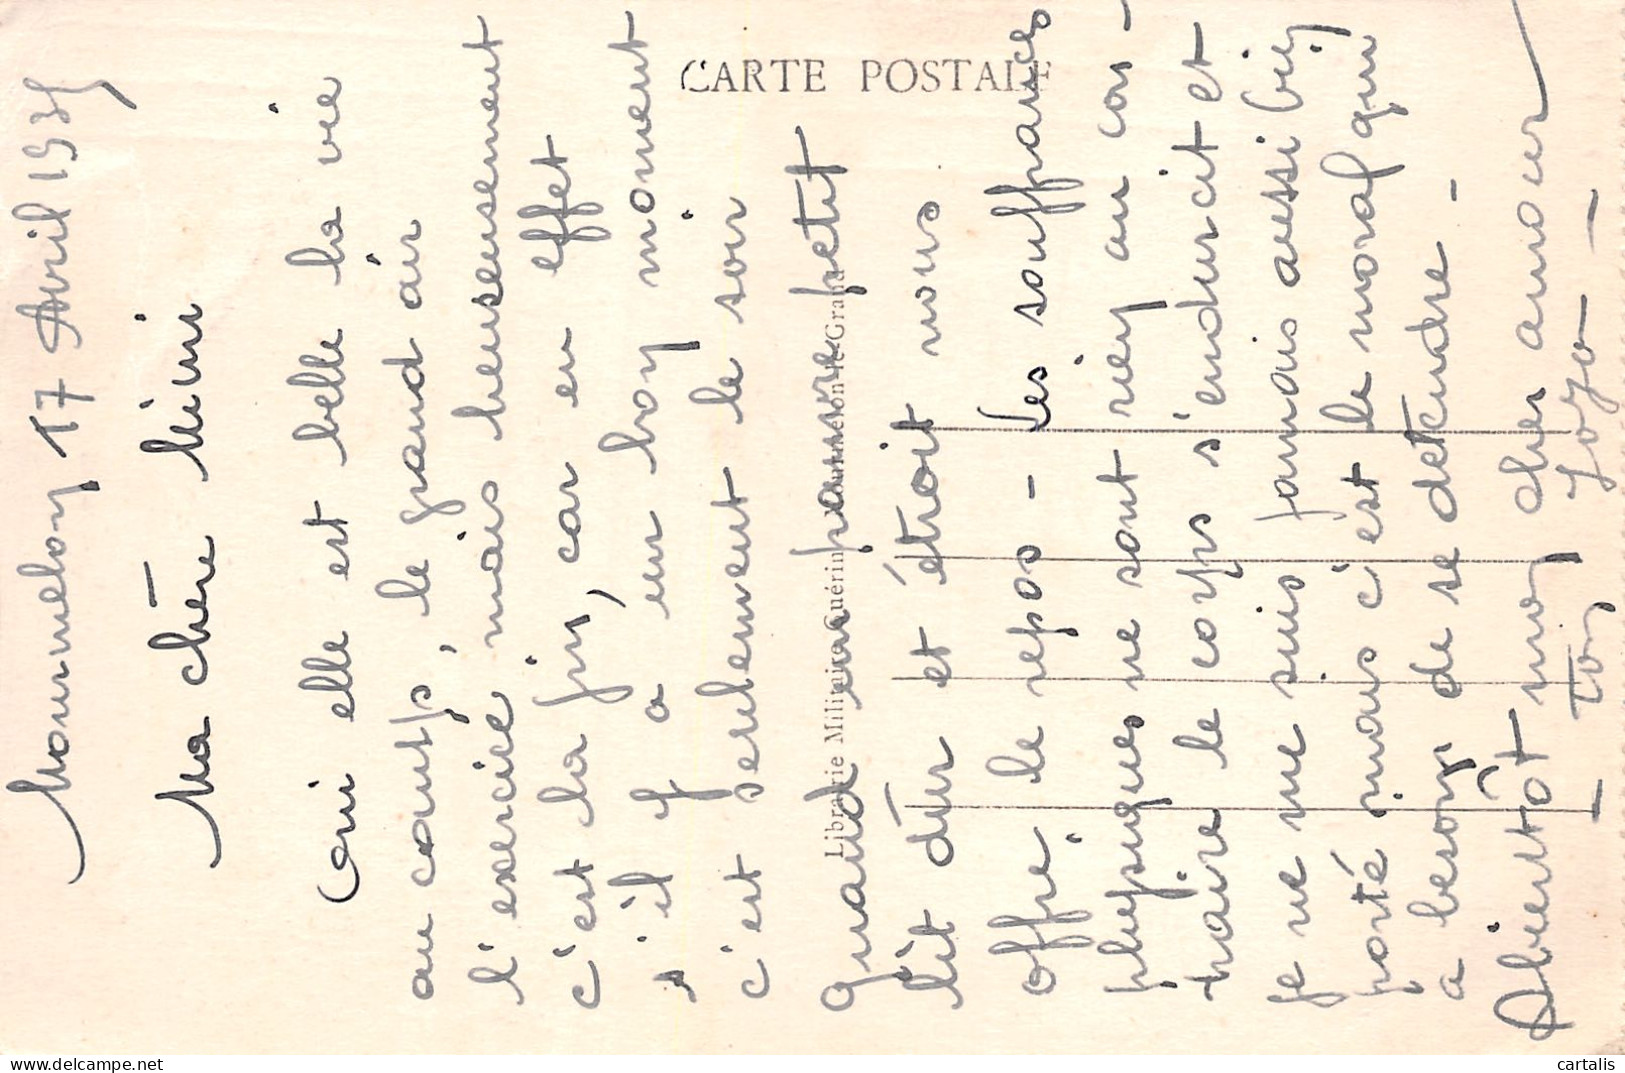 CARTE POSTALE
Librairie Militaire Guérin Mourmelon-le-Grand
Mourmelon 17 Avril 1935
Ma chère Mimi
Oui elle est belle la vie
au camp, le grand air
l'exercice, mais heureusement
c'est la fin, car en effet
s'il y a un bon moment
c'est seulement le soir
quand un pauvre petit
lit dur et étroit nous
offre le repos - Les souffrances
physiques ne sont rien au con-
traire le corps s'endurcit et
je ne me suis jamais aussi bien
porté mais c'est le moral qui
a besoin de se détendre -
A bientôt mon cher amour
- Ton Jojo -
cartalis